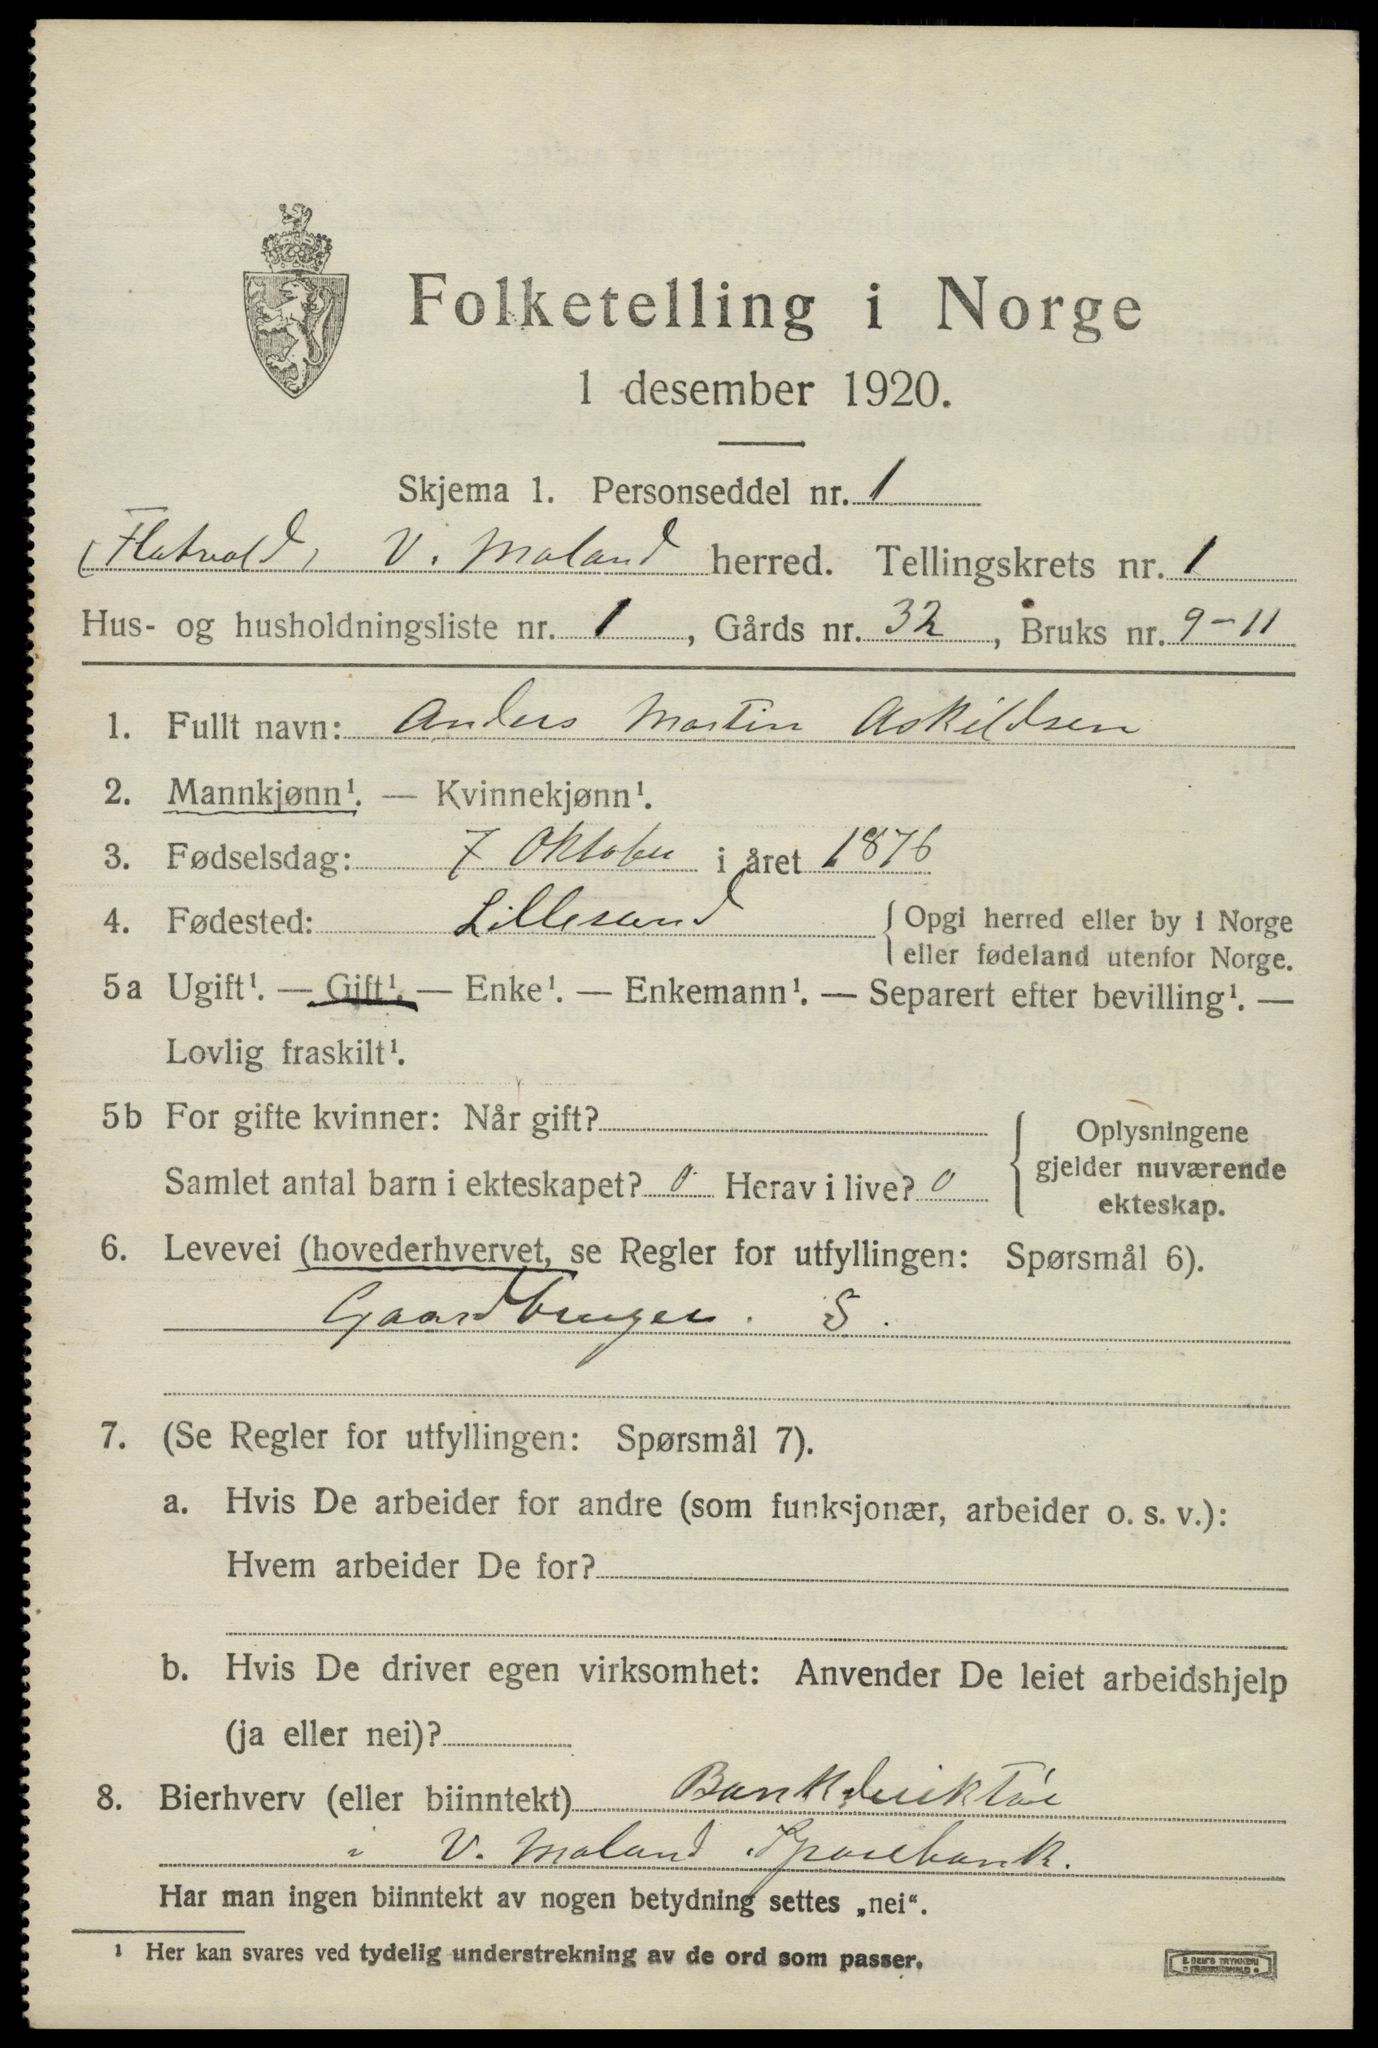 Folketelling i Norge
1 desember 1920.
Skjema 1. Personseddel nr. 1
(Flatvold) V. Moland herred. Tellingskrets nr. 1
Hus- og husholdningsliste nr. 1, Gårds nr. 32, Bruks nr. 9-11
1. Fullt navn: Anders Martin Askildsen
2. Mannkjønn¹. — Kvinnekjønn¹.
3. Fødselsdag: 7 Oktober i året 1876
4. Fødested: Lillesand { Opgi herred eller by i Norge
eller fødeland utenfor Norge.
5a Ugift¹. — Gift¹. — Enke¹. — Enkemann¹. — Separert efter bevilling¹. —
Lovlig fraskilt¹.
5b For gifte kvinner: Når gift?
Samlet antal barn i ekteskapet? 0 Herav i live? 0
{ Oplysningene
gjelder nuværende
ekteskap.
6. Levevei (hovederhvervet, se Regler for utfyllingen: Spørsmål 6).
Gaardbruger. S.
7. (Se Regler for utfyllingen: Spørsmål 7).
a. Hvis De arbeider for andre (som funksjonær, arbeider o. s. v.):
Hvem arbeider De for?
b. Hvis De driver egen virksomhet: Anvender De leiet arbeidshjelp
(ja eller nei)?
8. Bierhverv (eller biinntekt) Bankdirektør
i V. Moland Sparebank.
Har man ingen biinntekt av nogen betydning settes „nei“.
¹ Her kan svares ved tydelig understrekning av de ord som passer.